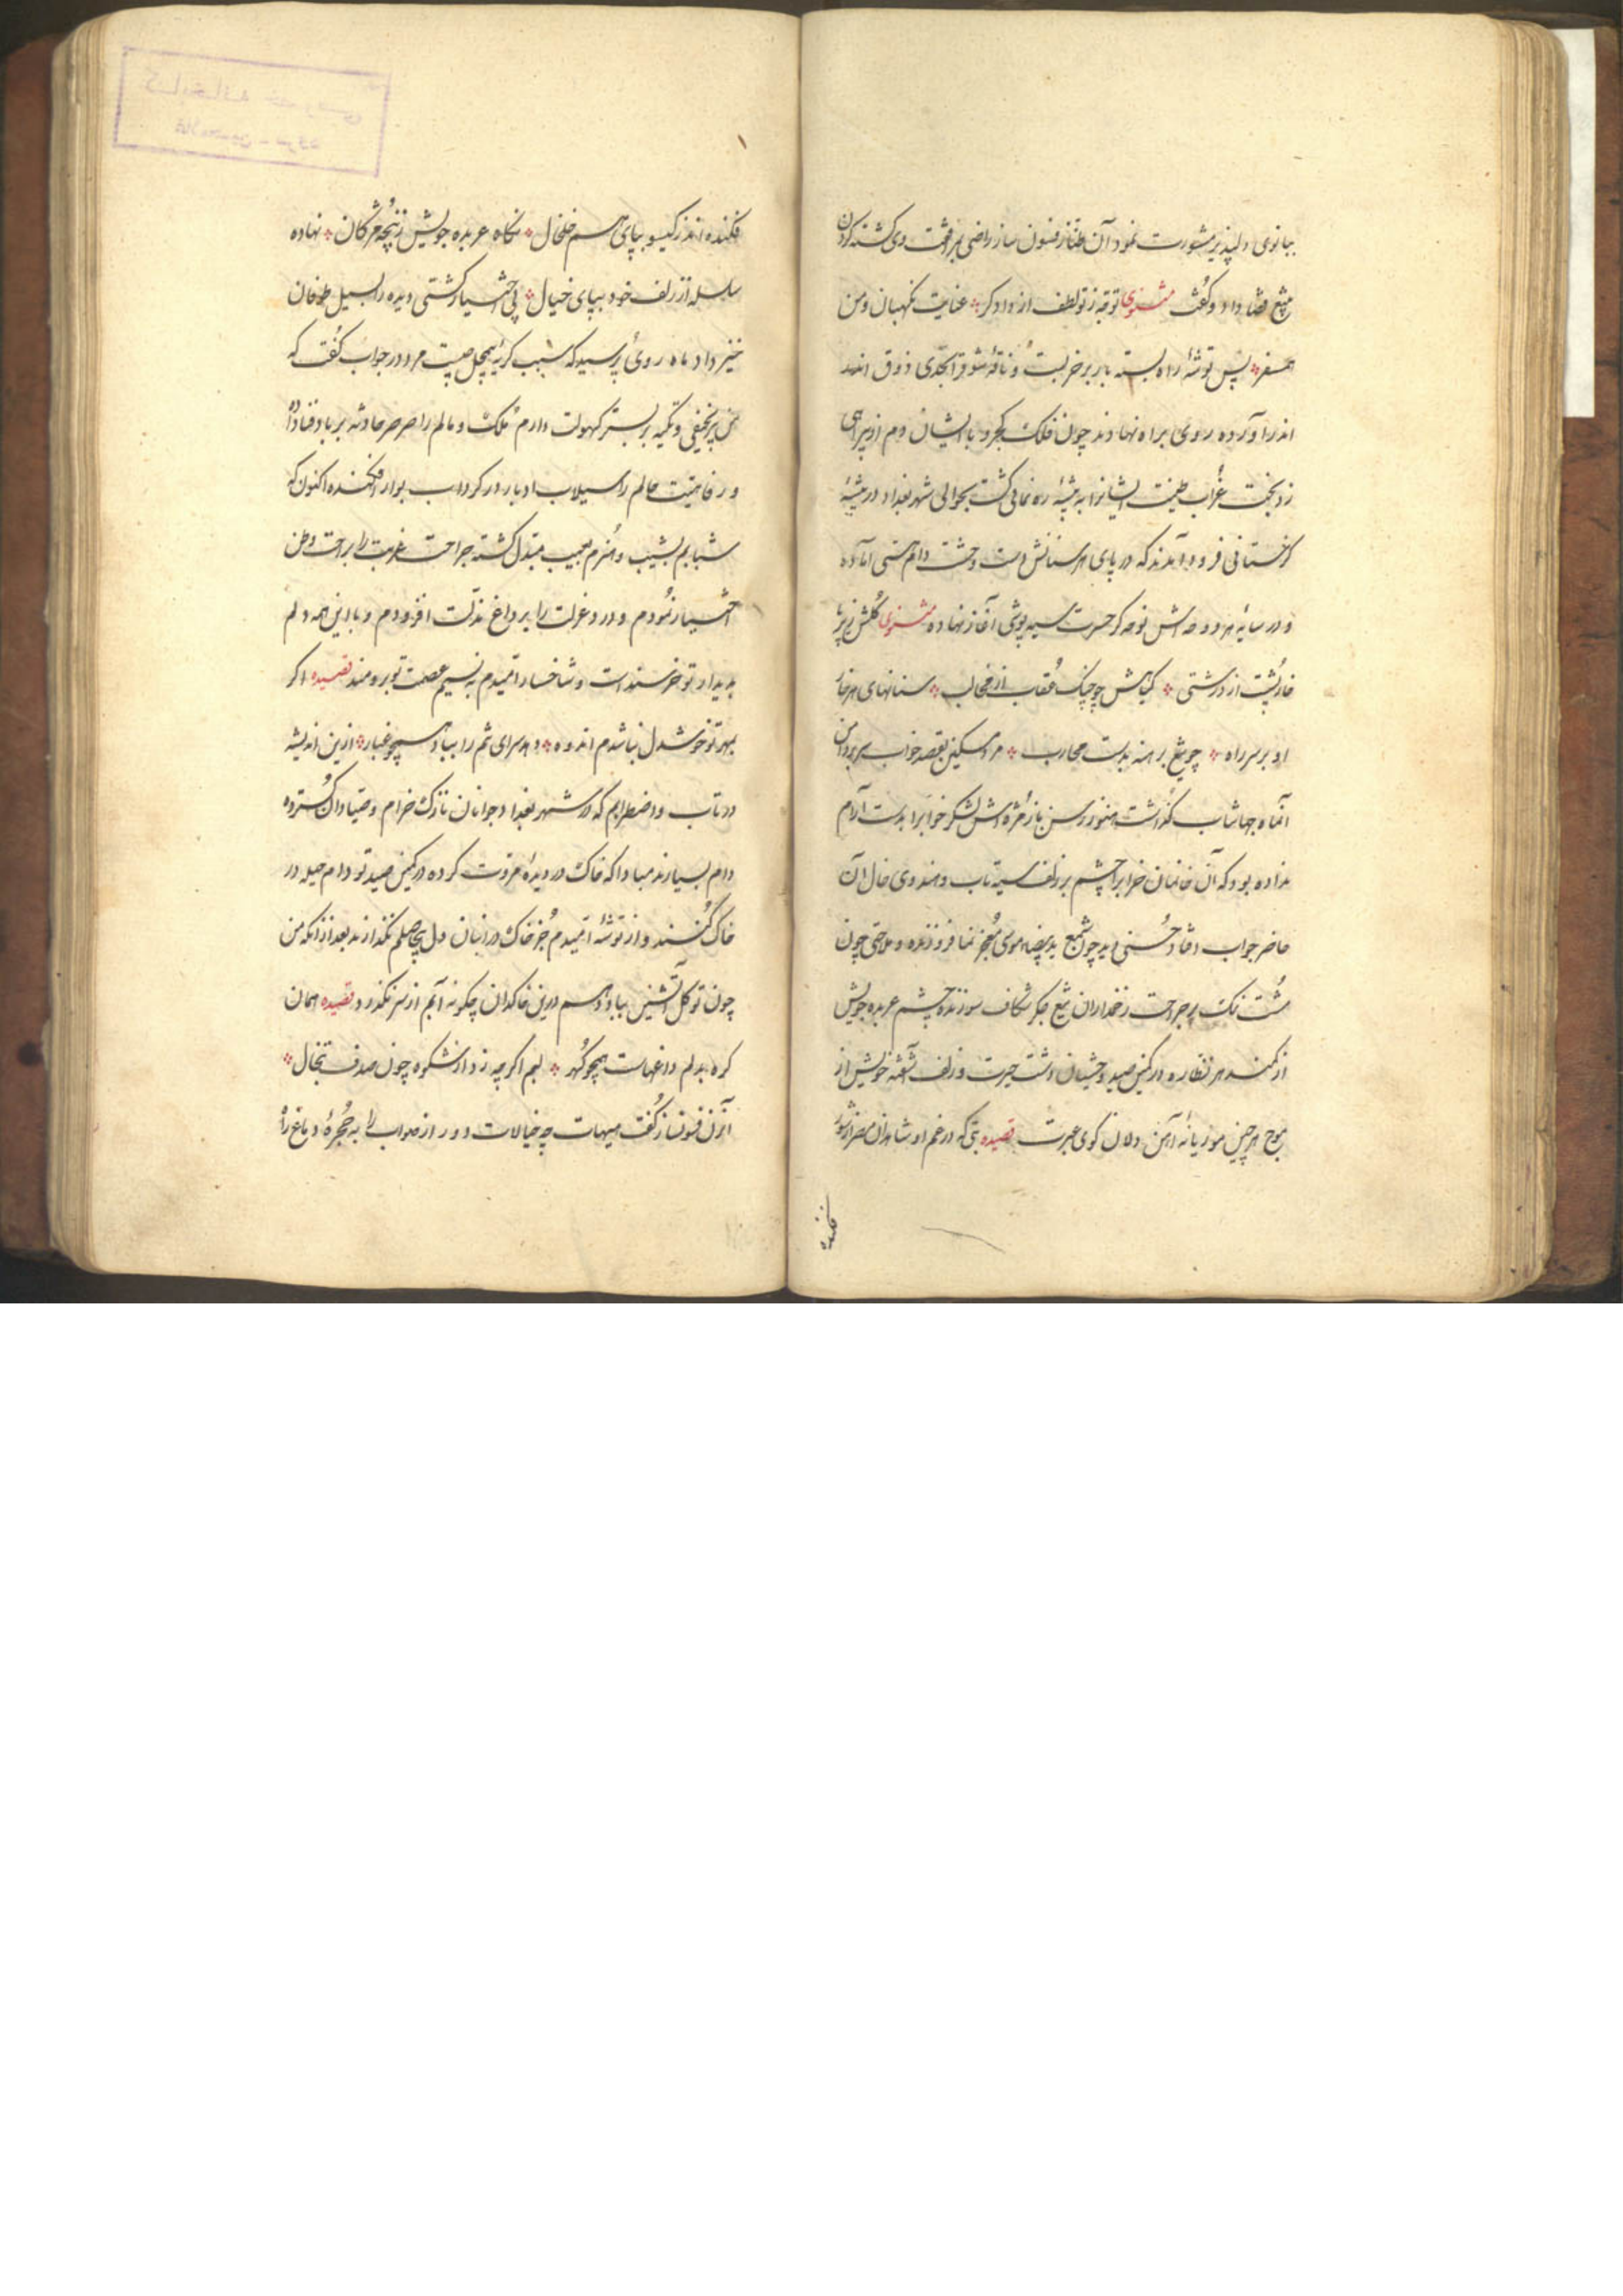 ببانوی دلپذیر مشورت نمود آن طناز فسون ساز راضی بمرافقت وی کشته گردن
تیغ قضا داد و گفت مثنوی توقه ز تو لطف از دادگر عنایت نگهبان و من
همسفر پس توشهٔ راه بسته بار بر خر بست و ناقهٔ شوق ذوق اندر
اندر آورده روی براه نهادند چون فلک کجرو با ایشان دم از همراهی
زد بخت غراب طینت ایشانرا به بیشهٔ ره نمائی گشت بحوالی شهر بغداد در بیشهٔ
فرود آمدند که در پای هر وحشت دام هستی آماده
و در سایهٔ هر دوحه اش نوحه گر حسرت سیه پوشی آغاز نهاده مثنوی گلش
خارپشت از درشتی گیاهش چو چنگ عقاب از مخالب سنانهای هر خار
او بر سر راه چو تیغ برهنه بدست محارب مرد مسکین بقصد خواب سر بر دامن
آنماه جهانتاب گذاشت هنوز رسن باز مژه اش لشکر خوابرا بدست آرام
نداده بود که آن خانمان خرابرا چشم بر زلف سیه تاب و هندوی خال آن
حاضر جواب افتاد حسنی دید چون شمع ید بیضاء موسی معجز نما فروزنده و ملاحتی چون
مشت نمک بر جراحت زخمداران تیغ جگر شکاف سوزنده چشم عربده جویش
از کمند هر نظاره در کمین صید وحشیان دشت حیرت و زلف آشفته خویش از
موج هر چین موریانهٔ آهن دلان کوی عبرت قصیده بتی که در غم او شاهدان مصر
فکنده
فکنده اند ز گیسو بپای هم خلخال نگاه عربده جویش ز پنجهٔ مژگان نهاده
سلسله از زلف خود بپای خیال بی اختیار کشتی دیده را بسیل طوفان
خیز داد ماه روی پرسید که سبب گریهٔ بیمحل چیست مرد در جواب گفت که
من پیر نحیفی و تکیه بر بستر کهولت دارم ملک و مالم را صرصر حادثه بر باد فنا داد
و رفاهیت حالم را سیلاب ادبار در گرداب بوار افکنده اکنون که
شبابم بشیب و هنرم بعیب مبتدل گشته جراحت غربت را بر راحت وطن
اختیار نمودم و درد عزلت را بر داغ مذلت افزودم و با این همه دلم
بدیدار تو خرسند است و شاخسار امیدم به نسیم عصمت تو برومند قصیده اگر
بمهر تو خوشدل نباشدم اندوه دهد سرای تنم را بباد همچو غبار ازین اندیشه
در تاب و اضطرابم که در شهر بغداد جوانان نازک خرام و صیادان گسترده
دام بسیارند مبادا که خاک در دیدهٔ مروت کرده در کمین صید تو دام حیله در
خاک کنند و از توشهٔ امیدم جز خاک در انبان دل بیحاصلم نگذارند بعد از آنکه من
چون تو گل آتشین بباد دهم درین خاکدان چگونه آبم از سر نگذرد قصیده همان
گره بدلم داغهاست همچو گهر لبم اگر چه زد از شکوه چون صدف تبخال
آنزن فسونساز گفت هیهات چه خیالات دور از صواب را به حجرهٔ دماغ راه